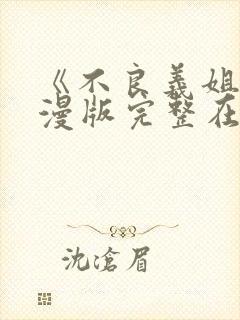 《不良義姐
漫版完整在
沈滄眉